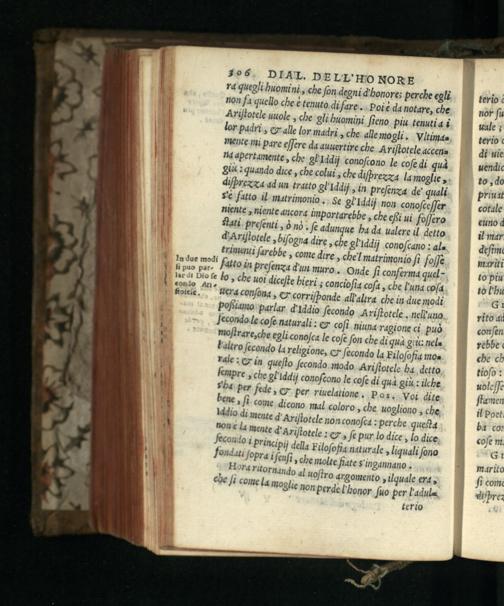 306 DIAL. DELL'HONORE
ra quegli huomini, che son degni d'honore; perche egli
non fa quello che è tenuto di fare. Poi è da notare, che
Aristotele uuole, che gli huomini sieno piu tenuti a i
lor padri, & alle lor madri, che alle mogli. Vltima-
mente mi pare essere da auuertire che Aristotele accen-
na apertamente, che gl'Iddij conoscono le cose di quà
giù: quando dice, che colui, che disprezza la moglie,
disprezza ad un tratto gl'Iddij, in presenza de' quali
s'è fatto il matrimonio. Se gl'Iddij non conoscesser
niente, niente ancora importarebbe, che essi ui fossero
stati presenti, ò nò. se adunque ha da ualere il detto
d'Aristotele, bisogna dire, che gl'Iddij conoscano: al-
trimenti sarebbe, come dire, che'l matrimonio si fosse
fatto in presenza d'un muro. Onde si conferma quel-
lo, che uoi diceste hieri; conciosia cosa, che l'una cosa
uera consona, & corrisponde all'altra che in due modi
possiamo parlar d'Iddio secondo Aristotele, nell'uno
secondo le cose naturali: & così niuna ragione ci può
mostrare, che egli conosca le cose son che di quà giù: nel-
l'altro secondo la religione, & secondo la Filosofia mo-
rale: & in questo secondo modo Aristotele ha detto
sempre, che gl'Iddij conoscono le cose di quà giù: ilche
s'ha per fede, & per riuelatione. Pos. Voi dite
bene, si come dicono mal coloro, che uogliono, che
Iddio di mente d'Aristotele non conosca: perche questa
non è la mente d'Aristotele: &, se pur lo dice, lo dice
secondo i principij della Filosofia naturale, liquali sono
fondati sopra i sensi, che molte fiate s'ingannano.
Hora ritornando al uostro argomento, ilquale era,
che si come la moglie non perde l'honor suo per l'adul-
V
terio
In due modi
si puo par-
lar di Dio se
condo Ari-
stotele.